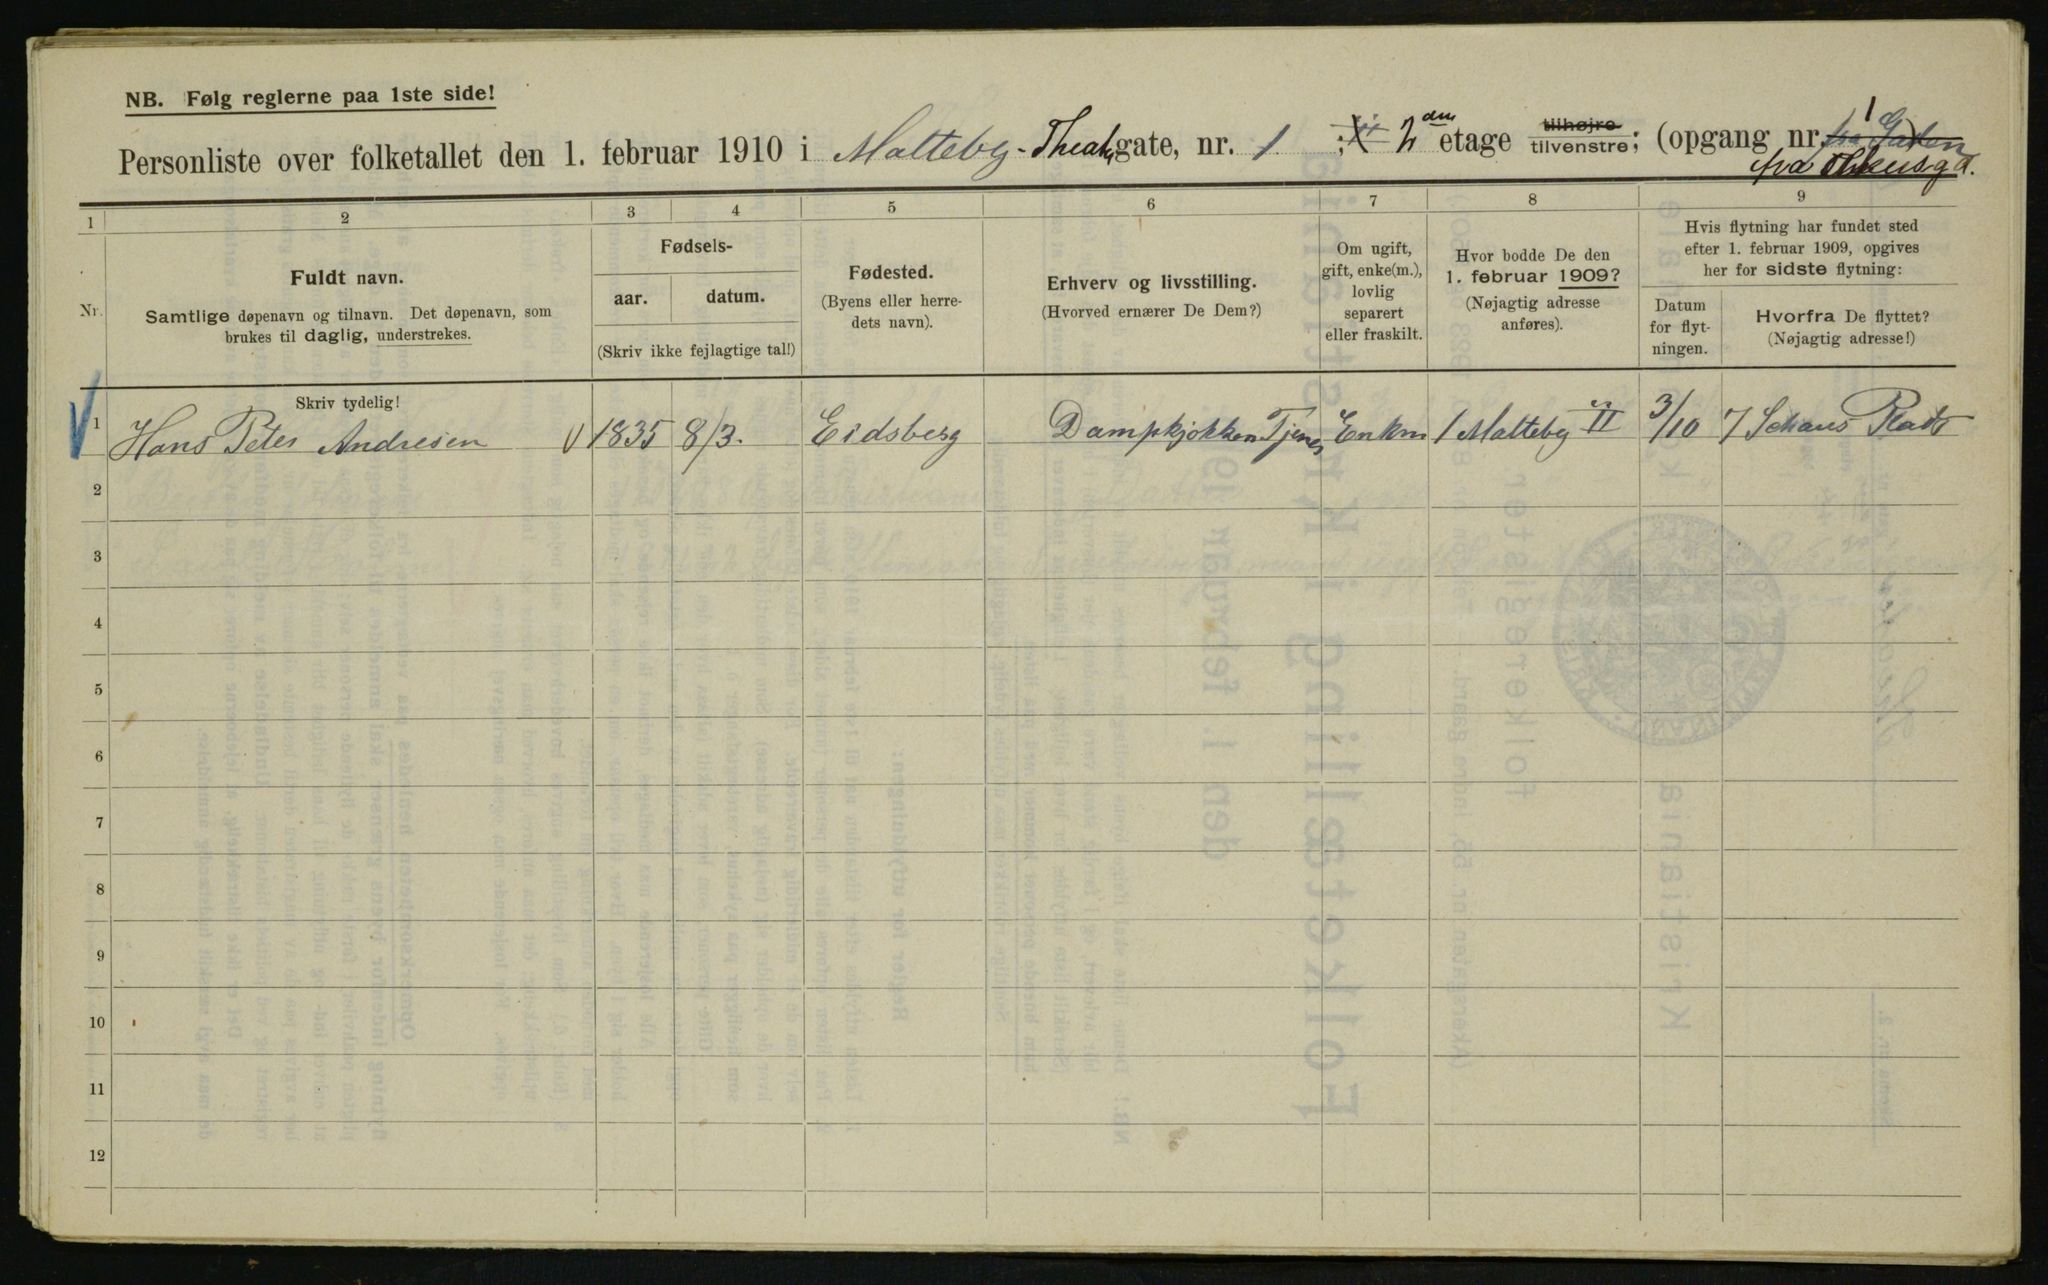 NB. Følg reglerne paa 1ste side!
Personliste over folketallet den 1. februar 1910 i Malteby-Theatergate, nr. 1 ; 2den etage tilhøjre tilvenstre; (opgang nr. 1
fra
1 2 3 4 5 6 7 8 9
Nr.
Fuldt navn.
Samtlige døpenavn og tilnavn. Det døpenavn, som
brukes til daglig, understrekes.
Fødsels-
aar. datum.
(Skriv ikke fejlagtige tal!)
Fødested.
(Byens eller herre-
dets navn).
Erhverv og livsstilling.
(Hvorved ernærer De Dem?)
Om ugift,
gift, enke(m.),
lovlig
separert
eller fraskilt.
Hvor bodde De den
1. februar 1909?
(Nøjagtig adresse
anføres).
Hvis flytning har fundet sted
efter 1. februar 1909, opgives
her for sidste flytning:
Datum
for flyt-
ningen.
Hvorfra De flyttet?
(Nøjagtig adresse!)
Skriv tydelig!
1 Hans Peter Andresen 1835 8/3. Eidsberg Dampkjøkken Tjener Enkm 1 Malteby II 3/10 7 Schaus Plads
2
3
4
5
6
7
8
9
10
11
12